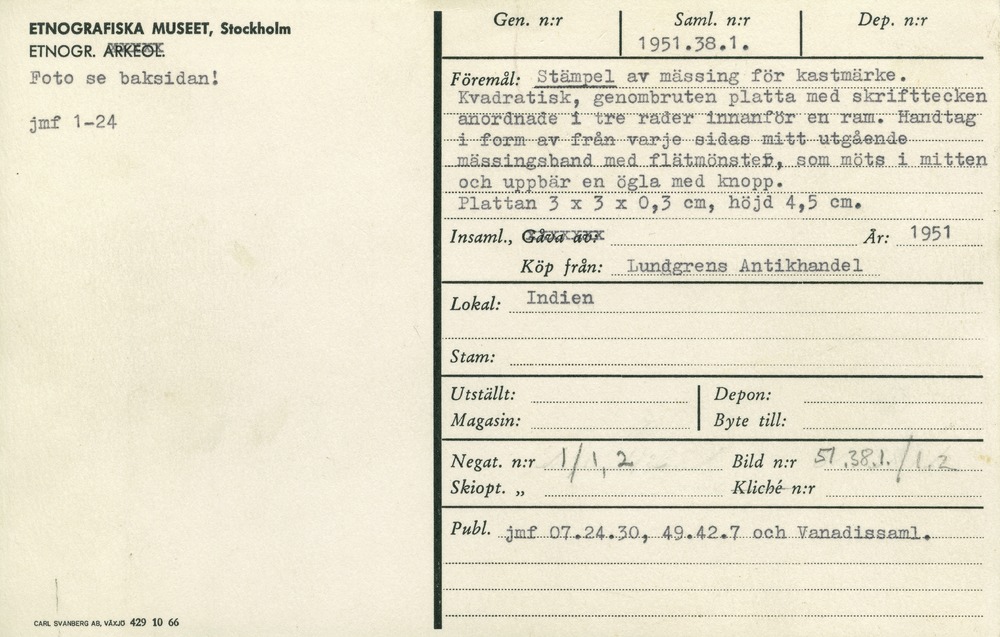 ETNOGRAFISKA MUSEET, Stockholm
ETNOGR. ARKEOL.
Foto se baksidan!
jmf 1-24
Gen. n:r
Saml. n:r
1951.38.1.
Dep. n:r
Föremål: Stämpel av mässing för kastmärke.
Kvadratisk, genombruten platta med skrifttecken
anordnade i tre rader innanför en ram. Handtag
i form av från varje sidas mitt utgående
mässingsband med flätmönster, som möts i mitten
och uppbär en ögla med knopp.
Plattan 3 x 3 x 0,3 cm, höjd 4,5 cm.
Insaml., Gåva av: År: 1951
Köp från: Lundgrens Antikhandel
Lokal: Indien
Stam:
Utställt: Depon:
Magasin: Byte till:
Negat. n:r 1/1, 2 Bild n:r 51.38.1./1.2
Skiopt. „ Kliché n:r
Publ. jmf 07.24.30, 49.42.7 och Vanadissaml.
CARL SVANBERG AB, VÄXJÖ 429 10 66